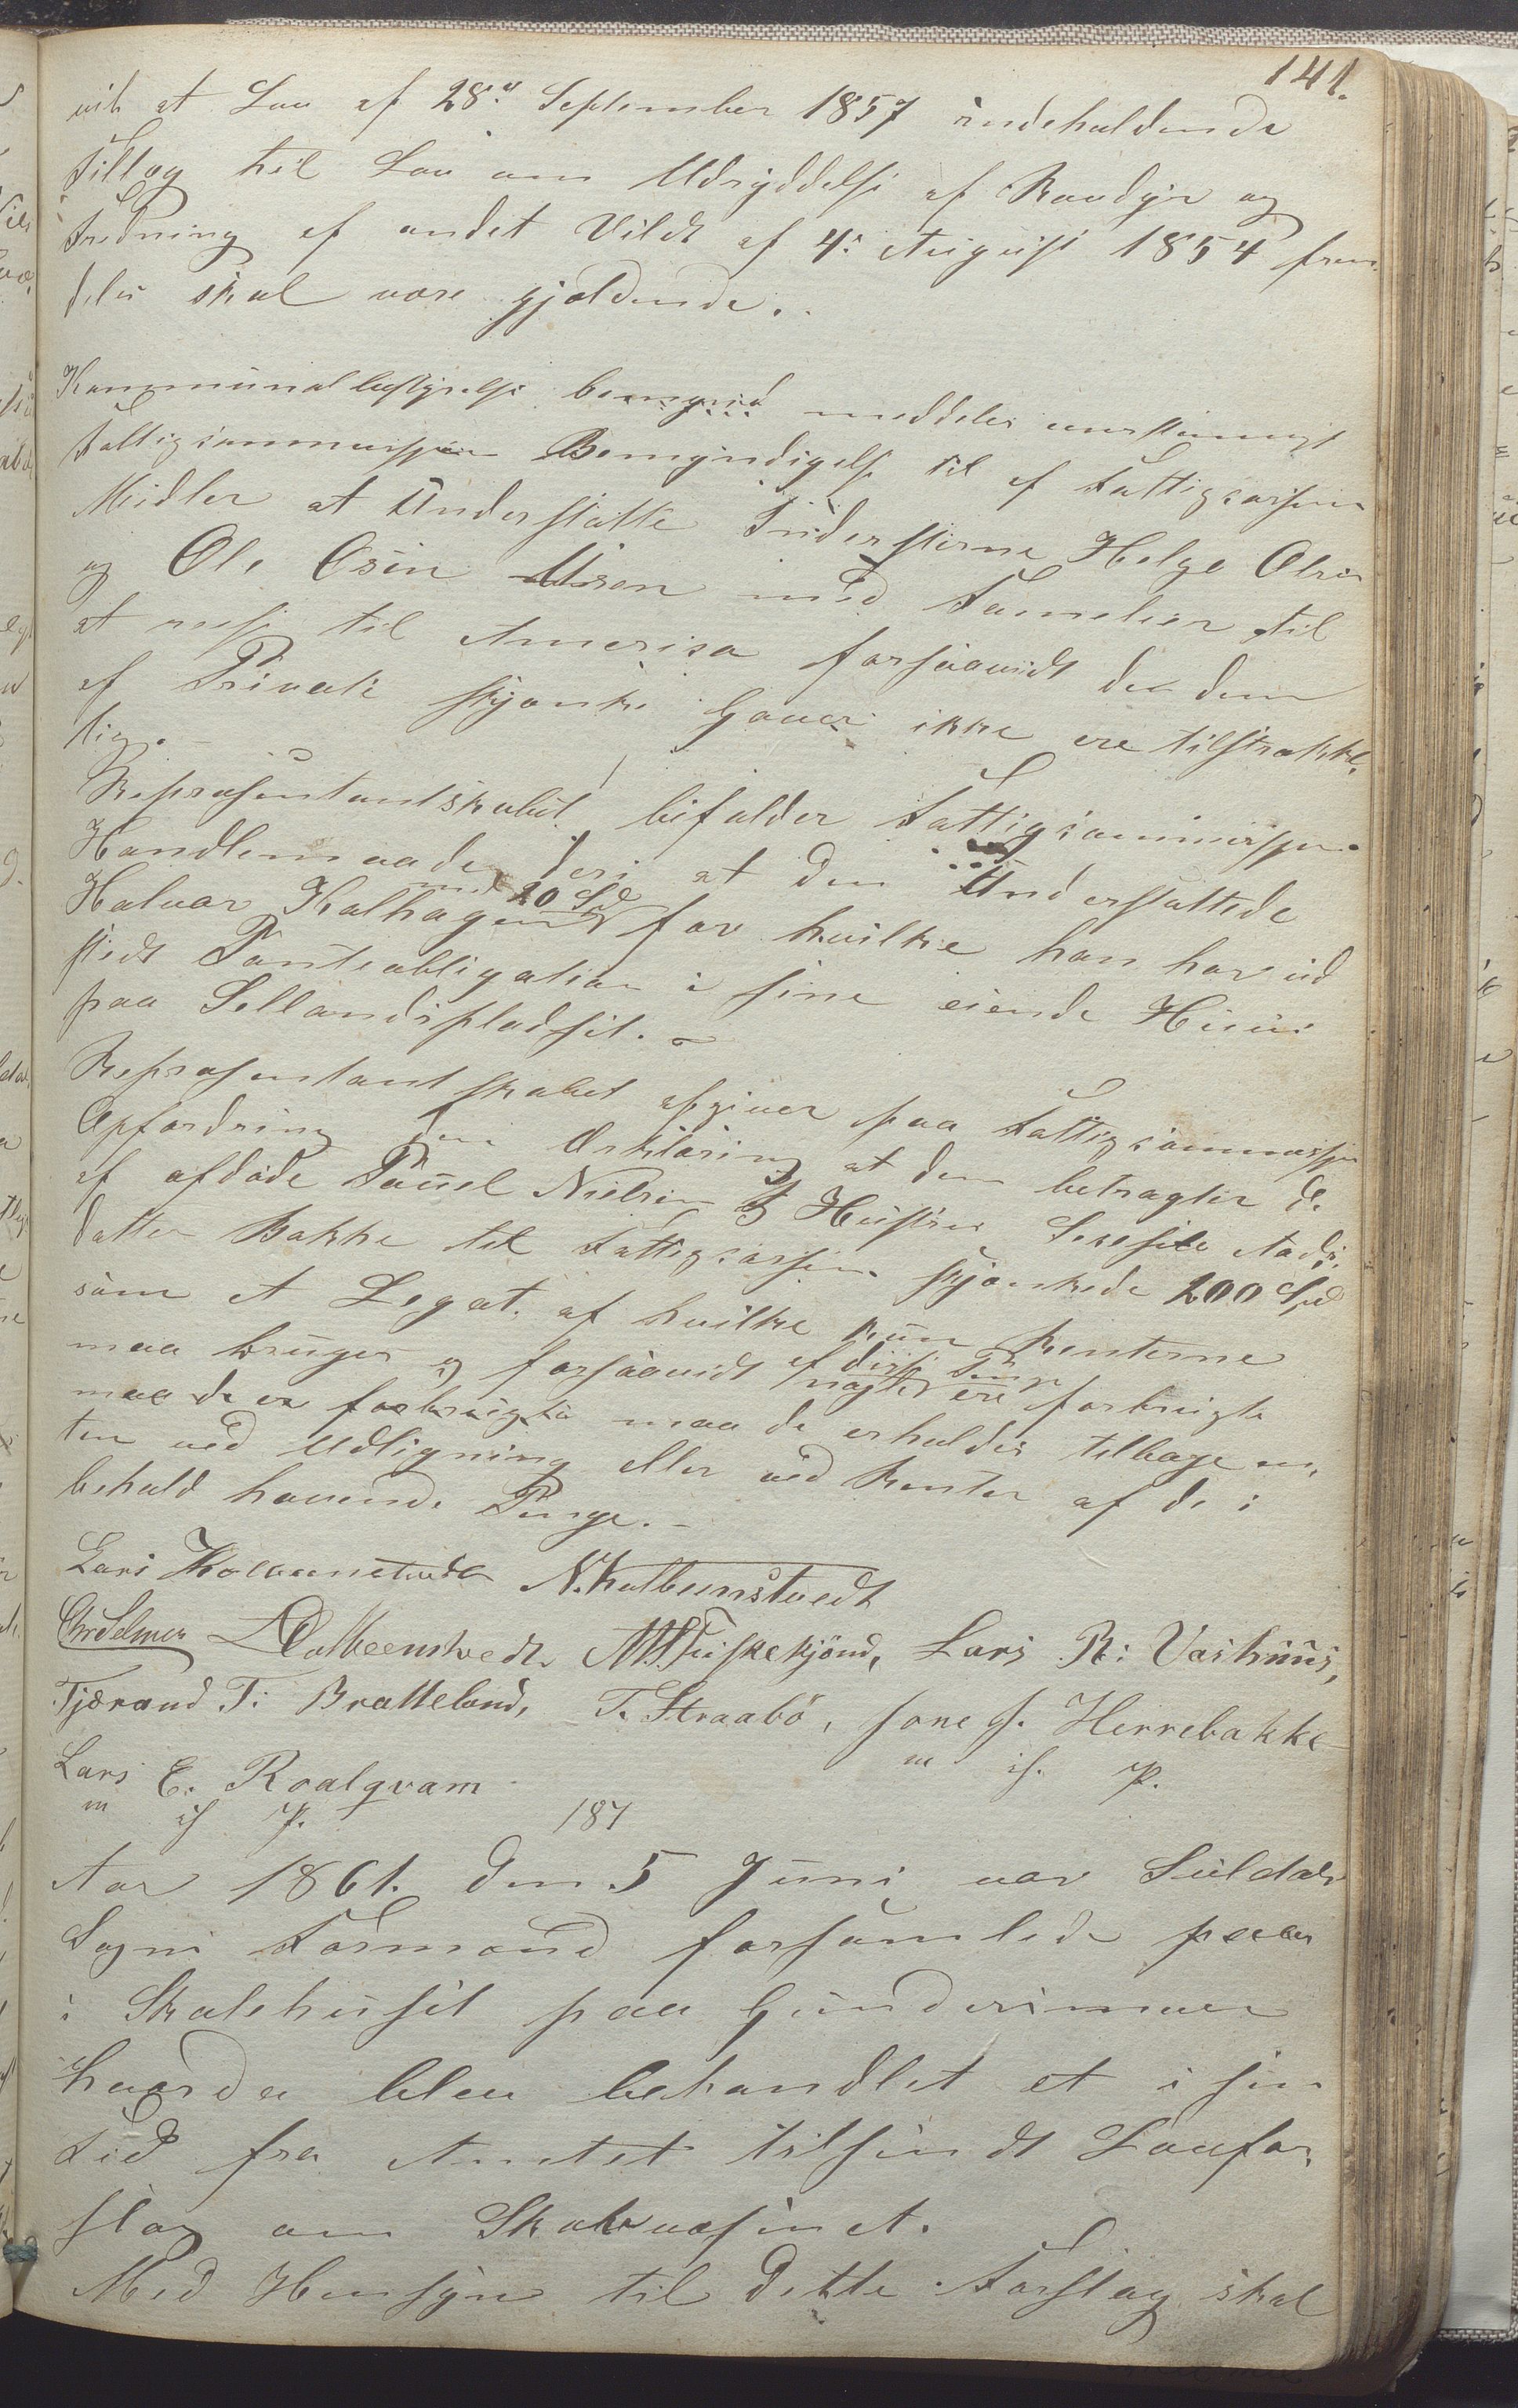 141.
at Lov af 28de September 1857 indeholdende
Tillæg til Lov om Udryddelse af Rovdyr og
Fredning af andet Vildt af 4: August 1854 frem
deles skal være gjældende.
Kommunalbestyrelse meddeler eenstemmigt
Fattigcommissionen Bemyndigelse til af Fattigcassens
Midler at Understøtte Indersterne Helge Olsen
og Ole Osen med Familier til
at reise til America forsaavidt de dem
af Private skjænkte Gaver ikke ere tilstrække,
lig.
Repræsentantskabet bifalder Fattigcommissionens
Handlemaade deri at den Understøttede
Halvor Kalhagen med 20 Spd for hvilke han har ud
stedt Panteobligation i sine eiende Huus
paa Sellandspladset.
Repræsentantskabet afgiver paa Fattigcommissionens
Opfordring den Erklæring at den betragter de
af afdøde Pouel Nielsen og Hustru Sesele
datter Bakke til Fattigcassen skjænkede 200 Spd
som et Legat af hvilke kun Renterne
maa bruges og forsaavidt af disse Penge noget ere forbrugte
maa de ere forbrugte maa de erholdes tilbage en,
ten ved Udligning eller ved Renter af de i
behold havende Penge.
Lars N. Kolbeenstvedt
Chr Selmer Kolbeenstvedt. Fiskekjönd, Lars R: Vaihuus,
Tjærand T: Bratteland, T. Straabö, Jone J. Herrebakke
m if. P.
Lars E. Roalqvam
m if P.
187
Aar 1861. den 5 Juni var Suldals
Sogns Formænd forsamlede paa
i Skolehuset paa
hvor da blev behandlet et i sin
Tid fra Amtet tilsendt Lovfor,
slag om Skolevæsenet.
Med Hensyn til dette Forslag skal